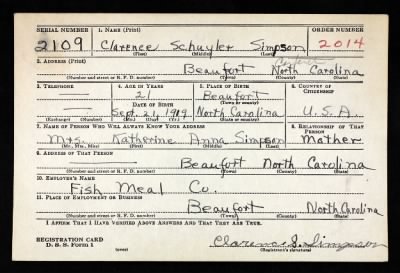 SERIAL NUMBER 1. NAME (Print) ORDER NUMBER
2109 Clarence Schuyler Simpson 2014
(First) (Middle) (Last)
2. ADDRESS (Print)
Beaufort Carteret North Carolina
(Number and street or R. F. D. number) (Town) (County) (State)
3. TELEPHONE 4. AGE IN YEARS 5. PLACE OF BIRTH 6. COUNTRY OF CITIZENSHIP
— 21 Beaufort
DATE OF BIRTH (Town or county)
— Sept. 21, 1919 North Carolina U.S.A.
(Exchange) (Number) (Mo.) (Day) (Yr.) (State or country)
7. NAME OF PERSON WHO WILL ALWAYS KNOW YOUR ADDRESS 8. RELATIONSHIP OF THAT PERSON
Mrs. Katherine Anna Simpson Mother
(Mr., Mrs., Miss) (First) (Middle) (Last)
9. ADDRESS OF THAT PERSON
Beaufort North Carolina
(Number and street or R. F. D. number) (Town) (County) (State)
10. EMPLOYER'S NAME
Fish Meal Co.
11. PLACE OF EMPLOYMENT OR BUSINESS
Beaufort North Carolina
(Number and street or R. F. D. number) (Town) (County) (State)
I AFFIRM THAT I HAVE VERIFIED ABOVE ANSWERS AND THAT THEY ARE TRUE.
REGISTRATION CARD
D. S. S. FORM 1 Clarence S. Simpson
(over) (Registrant's signature)